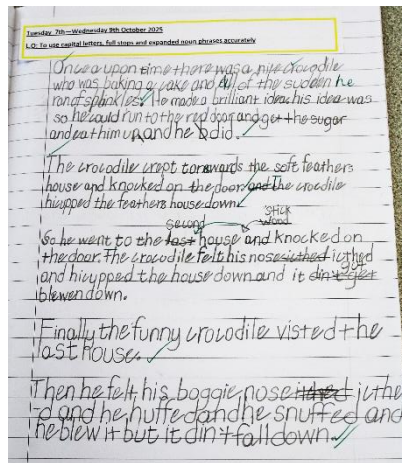 Tuesday 7th—Wednesday 9th October 2025
L.O: To use capital letters, full stops and expanded noun phrases accurately
Once a upon time there was a nife crocodile
who was baking a cake and all of the sudden he
ran of sprinkles. He made a brilliant idea his idea was
so he could run to the red door and get the sugar
and eat him up and he did.
The crocodile crept torwards the soft feathers
house and knocked on the door and The crocdile
hicupped the feathers house down.
second stick wood
So he went to the last house and knocked on
the door. The crocodile felt his nose icthed
and hicupped the house down and it din't get got
blewen down.
Finally the funny crocodile visted the
last house.
Then he felt his boggie nose icthe
-d and he huffed and he snuffed and
he blew it but it din't fall down.